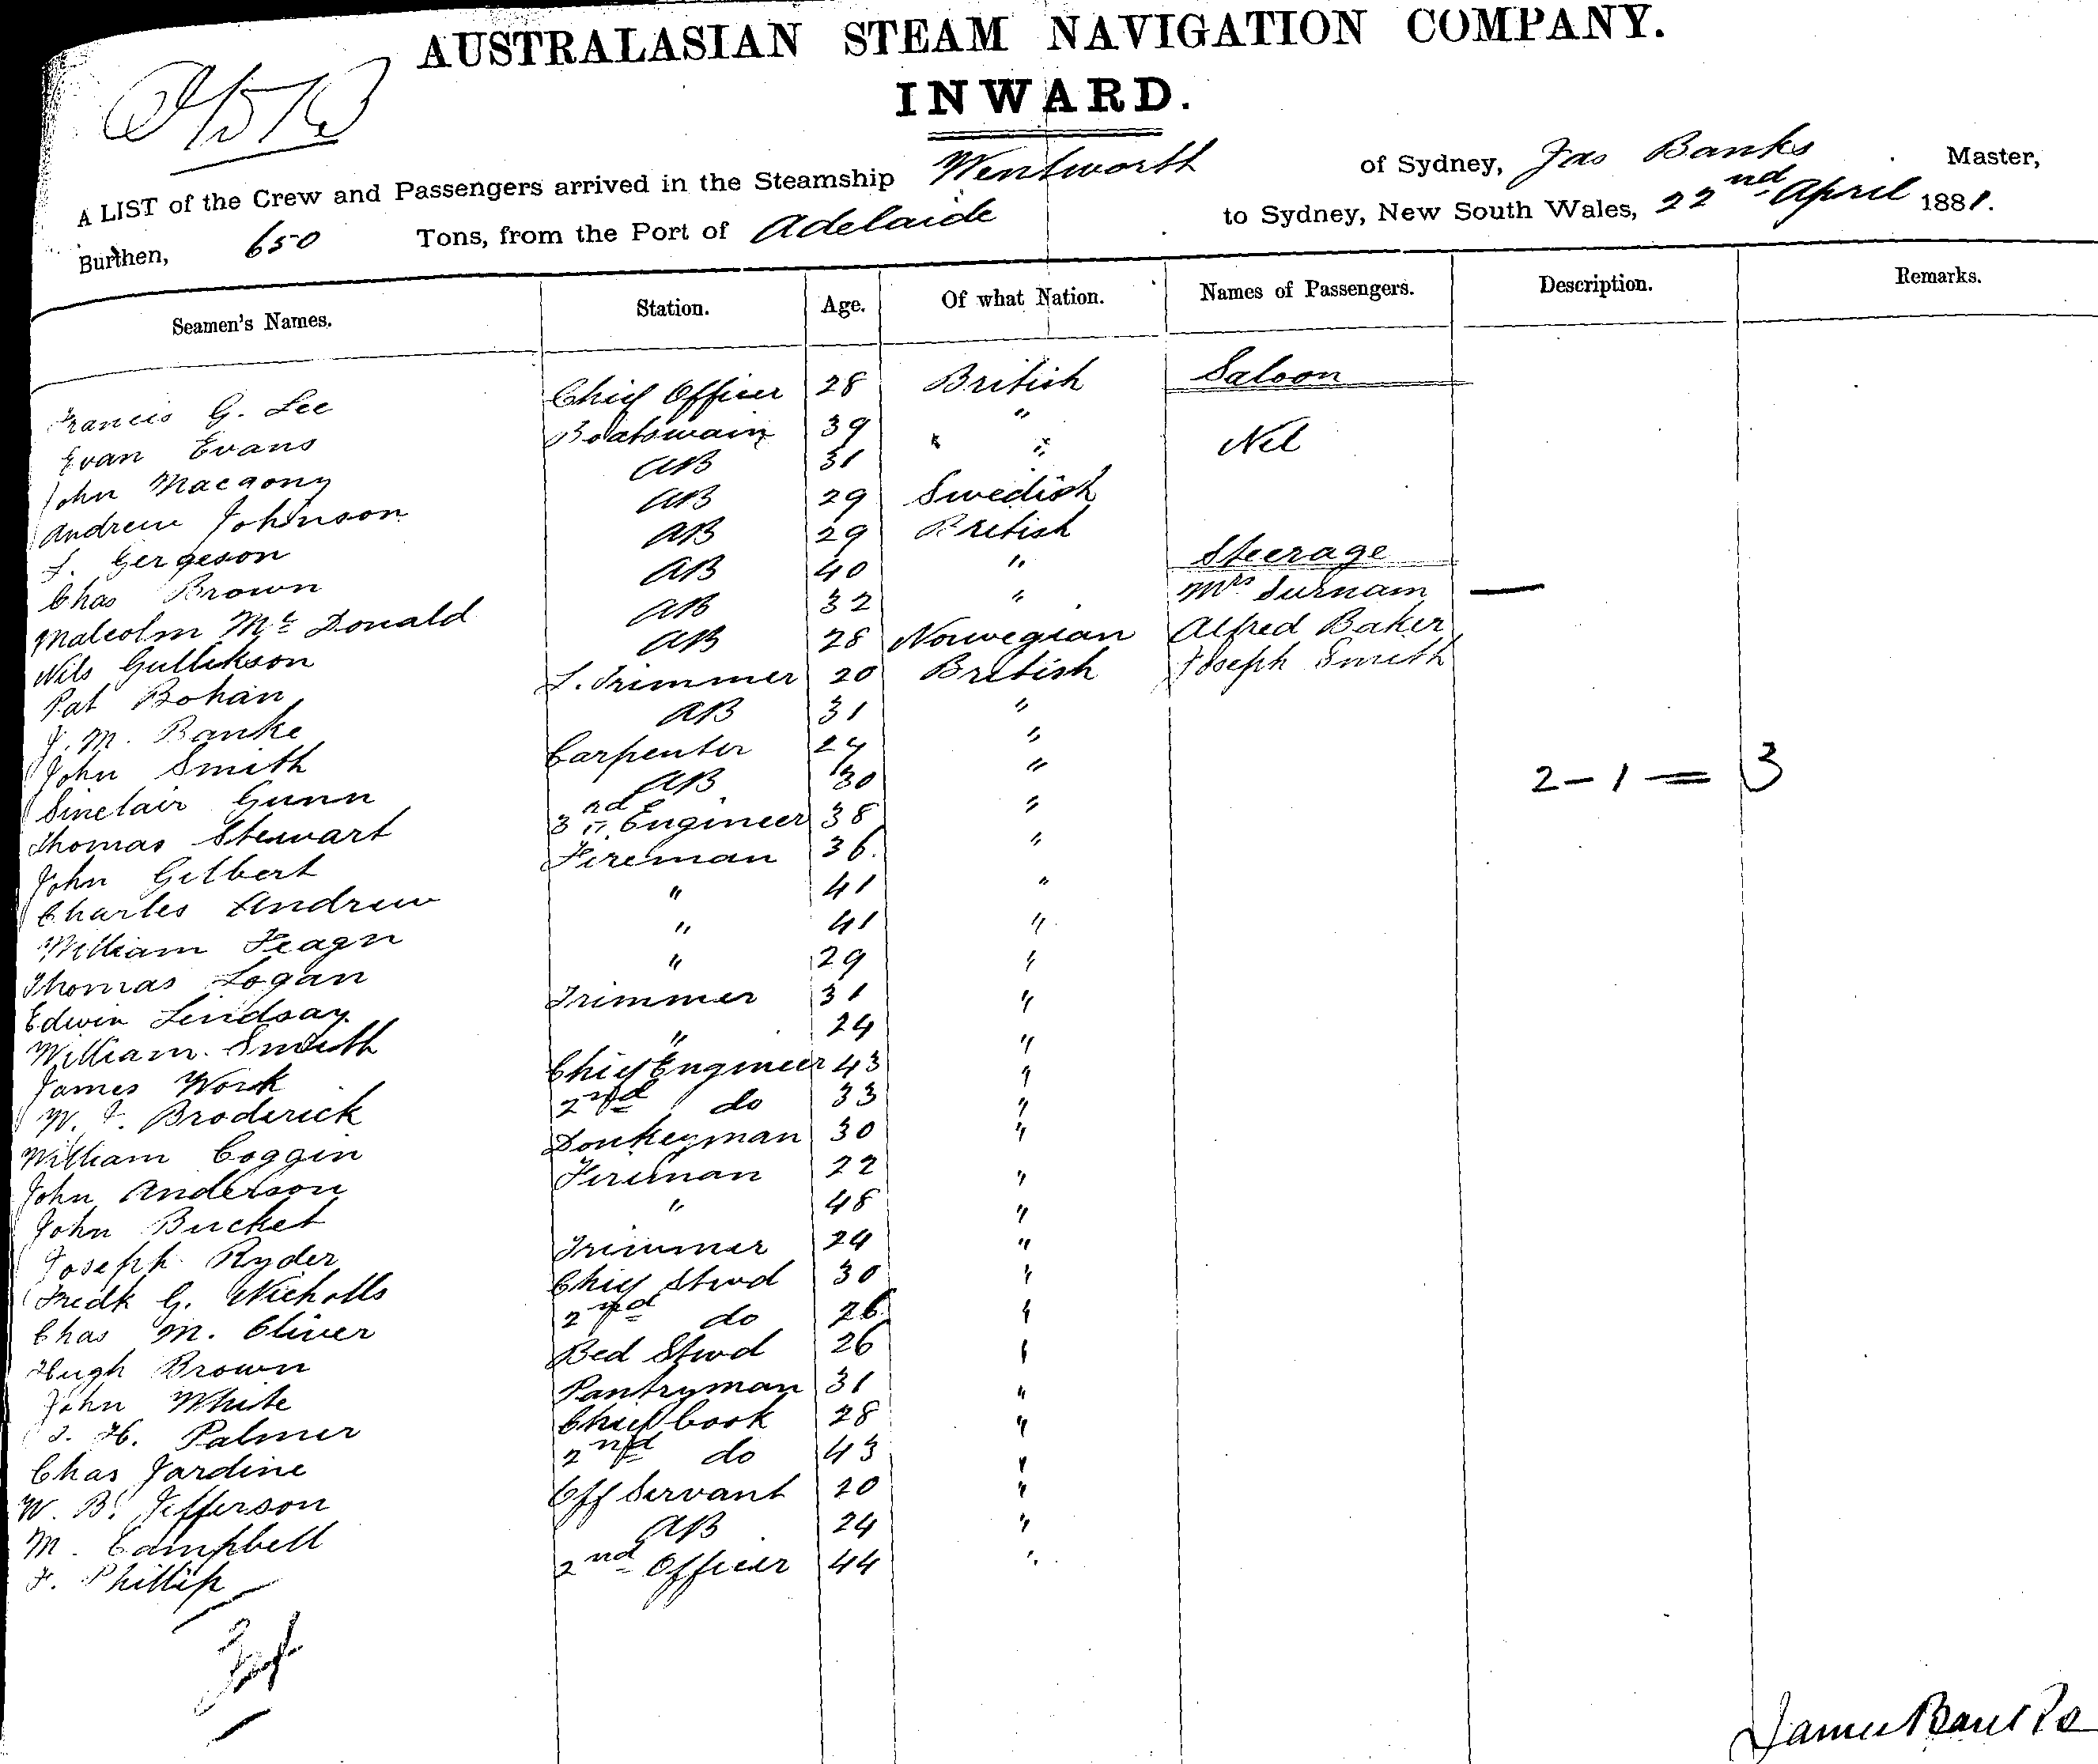 AUSTRALASIAN STEAM NAVIGATION COMPANY.
INWARD.
A LIST of the Crew and Passengers arrived in the Steamship Wentworth of Sydney, Jas Banks Master,
Burthen, 650 Tons, from the Port of Adelaide to Sydney, New South Wales, 22nd April 1881.
Seamen's Names. Station. Age. Of what Nation. Names of Passengers. Description. Remarks.
Francis G. Lee Chief Officer 28 British Saloon
Evan Evans Boatswain 39 "
John Macgony AB 31 " Nil
Andrew Johnson AB 29 Swedish
J. Gergeson AB 29 British
Chas Brown AB 40 " Steerage
Malcolm Mc Donald AB 32 " Mrs Surnam —
Nils Gullikson AB 28 Norwegian Alfred Baker
Pat Bohan L. Trimmer 20 British Joseph Smith
J. M. Banke AB 31 "
John Smith Carpenter 24 "
Sinclair Gunn AB 30 " 2 - 1 = 3
Thomas Stewart 3rd Engineer 38 "
John Gilbert Fireman 36 "
Charles Andrew " 41 "
William Feagn " 41 "
Thomas Logan " 29 "
Edwin Lindsay Trimmer 31 "
William Smith " 24 "
James Work Chief Engineer 43 "
W. J. Broderick 2nd do 33 "
William Coggin Donkeyman 30 "
John Anderson Fireman 22 "
John Bucket " 48 "
Joseph Ryder Trimmer 24 "
Fredk G. Nicholls Chief Stwd 30 "
Chas M. Oliver 2nd do 26 "
Hugh Brown Bed Stwd 26 "
John White Pantryman 31 "
J. H. Palmer Chief Cook 28 "
Chas Jardine 2nd do 43 "
W. B. Jefferson Off Servant 20 "
M. Campbell AB 24 "
F. Phillip 2nd Officer 44 "
James Banks